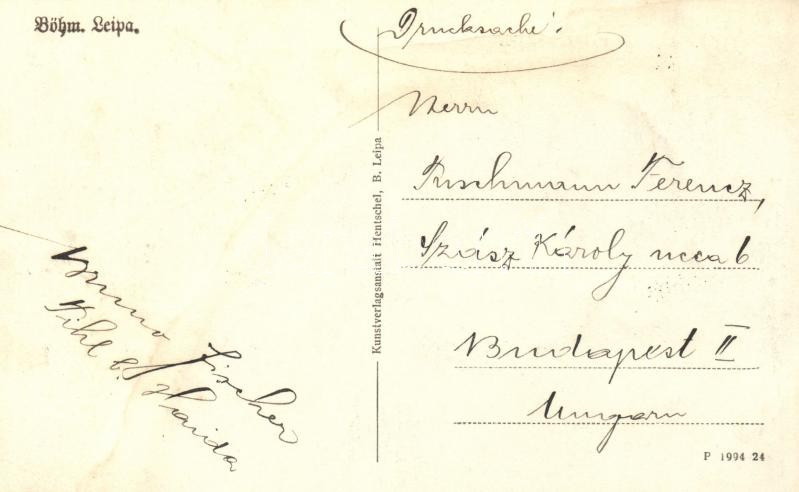 Böhm. Leipa.
Drucksache.
Herrn
Puschmann Ferencz,
Szász Károly ucca 6
Budapest II
Ungarn
Bruno Fischer
Pihl b. Haida
Kunstverlagsanstalt Hentschel, B. Leipa
P 1994 24